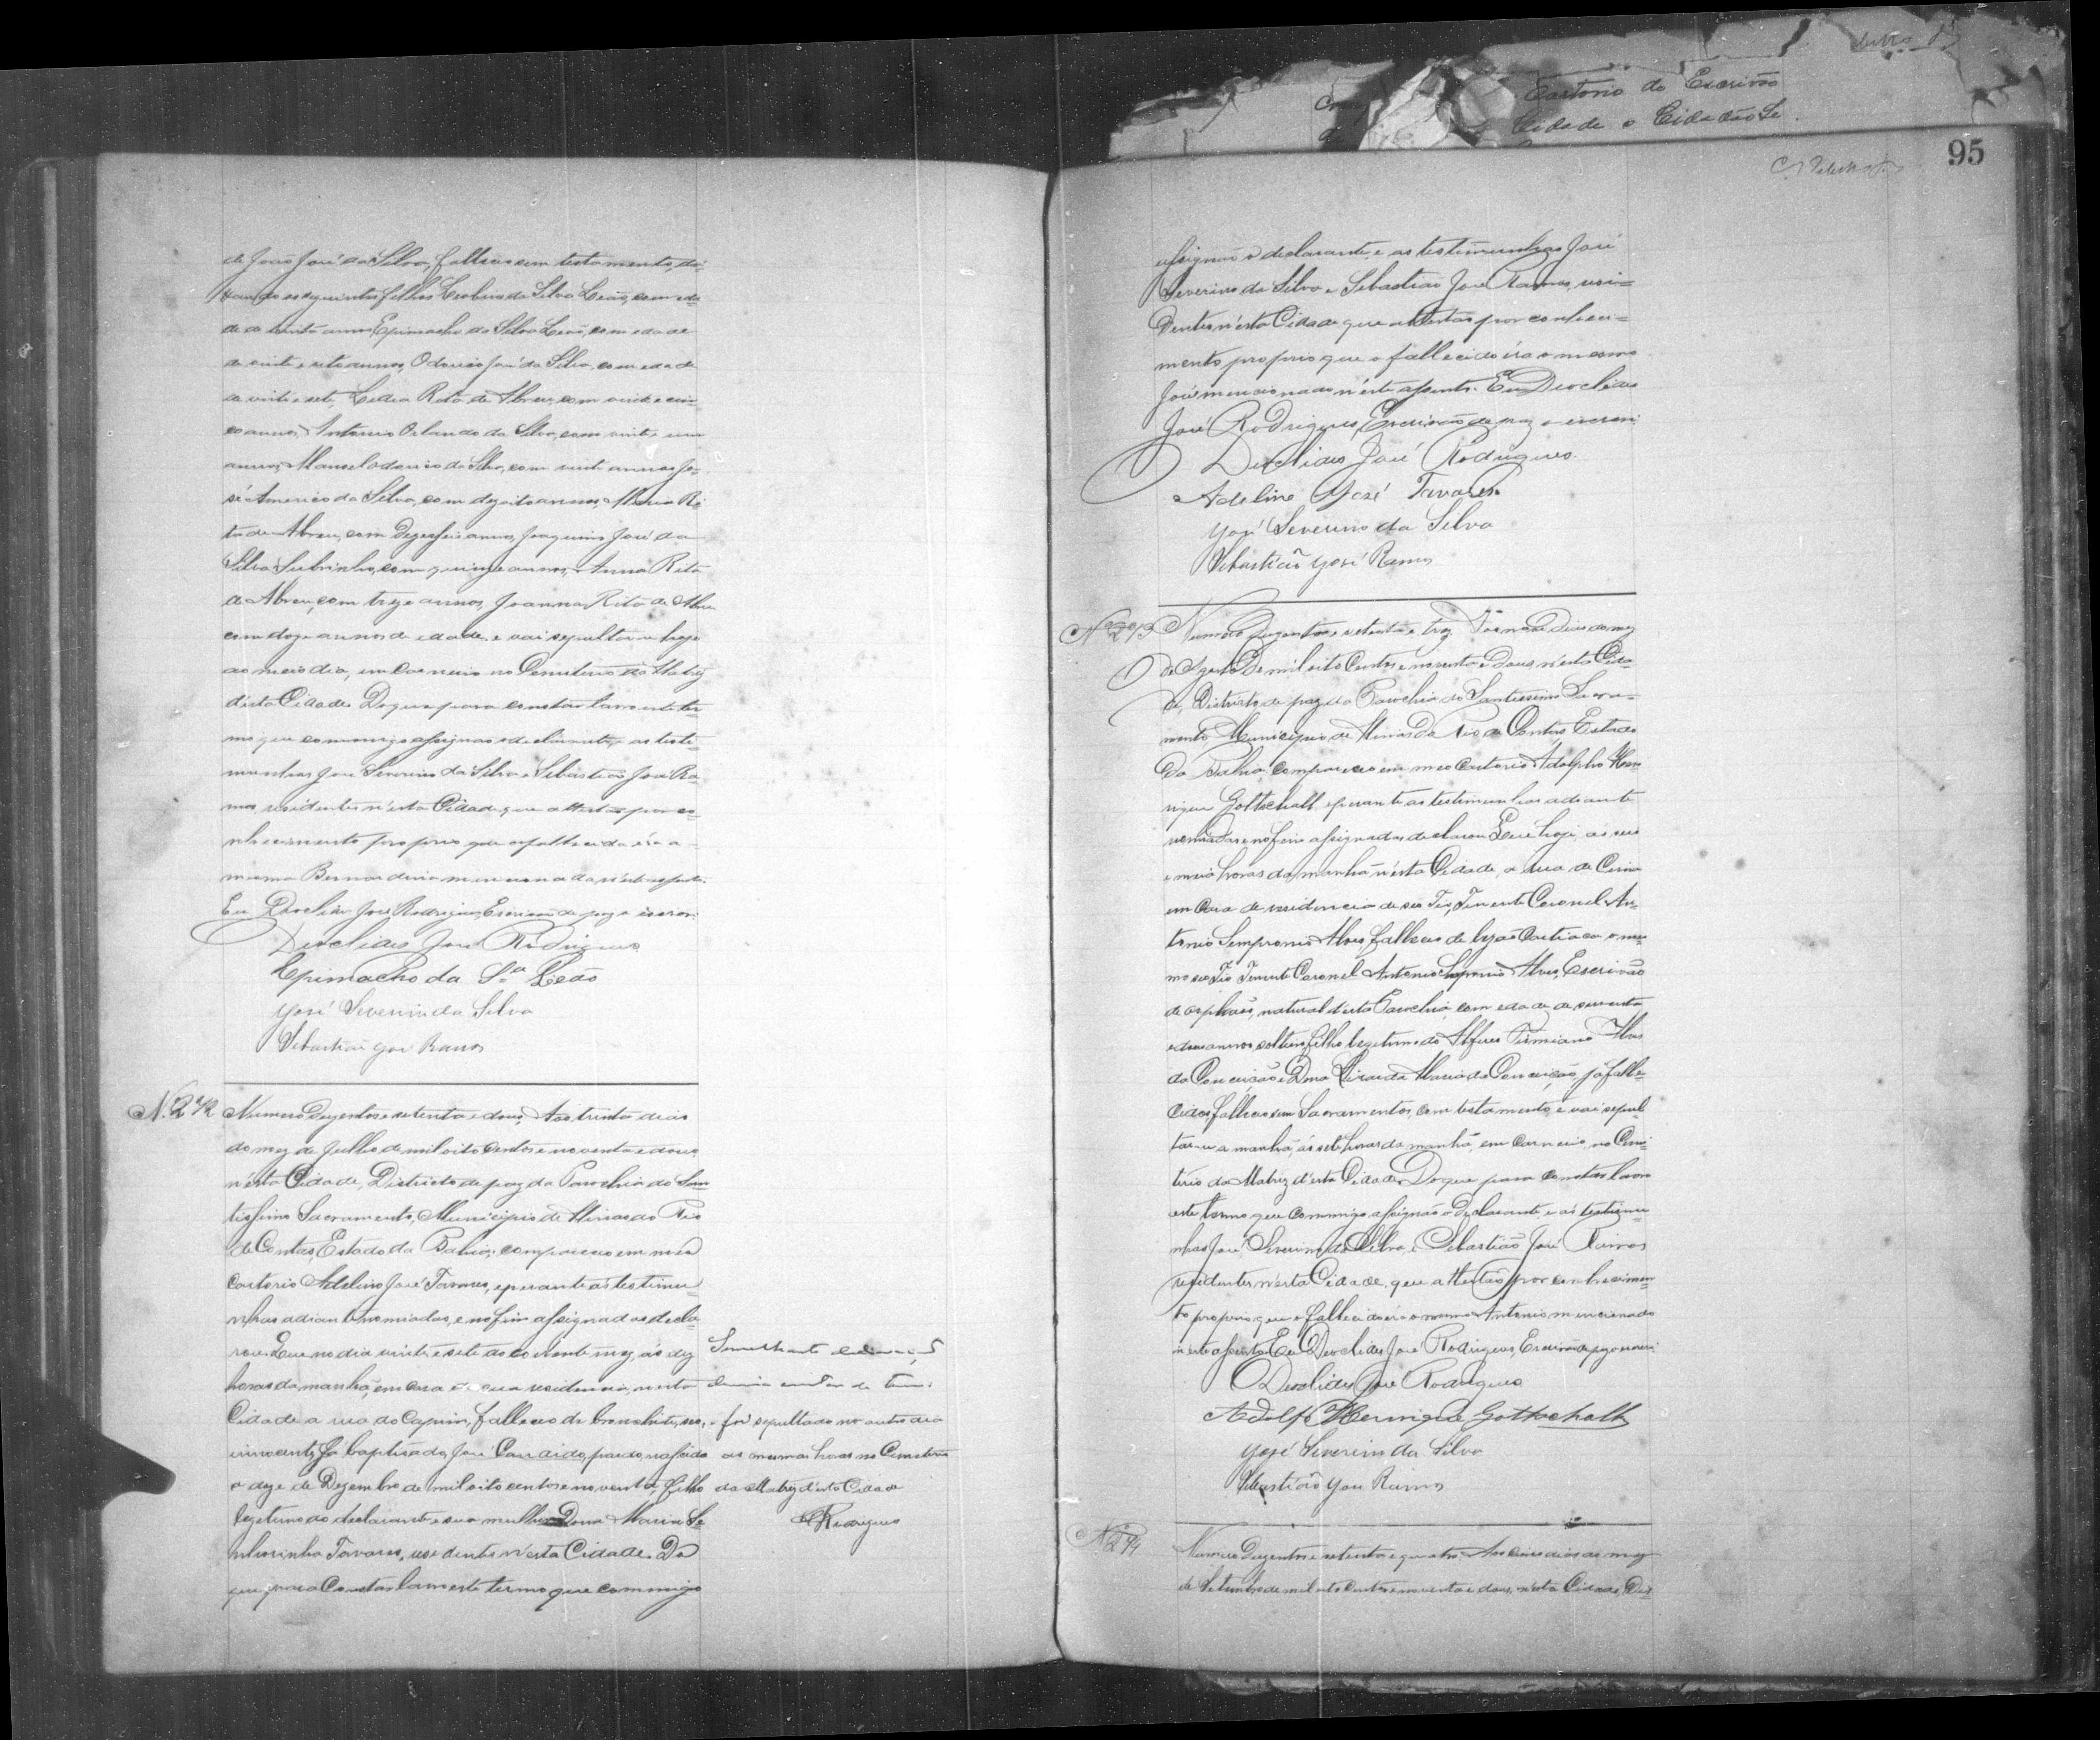 Cartorio do Escrivão
Cidade o Cidadão Se
95
de João José da Silva, falleceo sem testamento, dei-
xando os seguintes filhos da Silva Leão, com eda-
de de trinta annos, Epimacho da Silva Leão, com edade
de vinte e oito annos, Odorico José da Silva, com edade
de vinte e sete, Lidia Rita de Abreu, com vinte e cin-
co annos, Antonio Orlando da Silva, com vinte e um
annos, Manoel da Silva, com vinte annos, Jo-
sé Americo da Silva, com dezoito annos, Maria Ri-
ta de Abreu, com dezesseis annos, Joaquim José da
Silva Subrinho, com quinze annos, Anna Rita
de Abreu, com treze annos, Joanna Rita de Abreu
com doze annos de edade, e vai sepultar-se hoje
ao meio dia, em carneiro no Cemiterio da Matriz
d'esta Cidade. Do que para constar lavro este ter-
mo que commigo assignão o declarante, e as teste-
munhas José Severino da Silva e Sebastião José Ra-
mos, residentes n'esta Cidade, que attestão por co-
nhecimento proprio que a fallecida éra a
mesma Bernardina mencionada n'este assento.
Eu Deoclides José Rodrigues, Escrivão de paz o escrevi
Deoclides José Rodrigues
Epimacho da Sª Leão
José Severino da Silva
Sebastião José Ramos
N. 272
Numero Duzentos e setenta e dous. Aos trinta dias
do mez de Julho de mil oito centos e noventa e dous,
n'esta Cidade, Districto de paz da Parochia do San-
tissimo Sacramento, Municipio de Minas do Rio
de Contas, Estado da Bahia, compareceo em meu
cartorio Adelino José Tavares, e perante as testimu-
nhas adiante nomiadas, e no fim assignadas decla-
rou: Que no dia vinte e sete do corrente mez, ás dez
horas da manhã, em casa de sua residencia, n'esta
Cidade a rua do Capim, falleceo de bronchite, seo
innocente filho baptisado, José Candido, pardo, nascido
a doze de Dezembro de mil oito centos e noventa, filho
legitimo do declarante e sua mulher Dona Maria Se-
nhorinha Tavares, residentes n'esta Cidade. Do
que para Constar lavro este termo que commigo
e foi sepultado no outro dia
as mesmas horas no Cemiterio
da Matriz d'esta Cidade
Rodrigues
assignão o declarante, e as testimunhas José
Severino da Silva e Sebastião José Ramos, resi-
dentes n'esta Cidade que attestão por conheci-
mento proprio que o fallecido éra o mesmo
José mencionado n'este assento. Eu Deoclides
José Rodrigues, Escrivão de paz o escrevi
Deoclides José Rodrigues.
Adelino José Tavares
José Severino da Silva
Sebastião José Ramos
Nº 273
Numero Duzentos e setenta e trez. Aos dias do mez
de Agosto de mil oito Centos e noventa e Dous n'esta Cida-
de, Districto de paz da Parochia do Santissimo Sacra-
mento Municipio de Minas do Rio de Contas, Estado
da Bahia, compareceo em meo Cartorio Adolpho Hen-
rique Gottschalk, e perante as testimunhas adiante
nomiadas e no fim assignadas declarou: Que hoje, ás seis
e meia horas da manhã n'esta Cidade, a rua de Cima
em casa de residencia de seo Tio, Tenente Coronel An-
tonio Sempronio Alves, falleceo de lezão Cardiaca o mes-
mo seo Tio Tenente Coronel Antonio Sempronio Alves, Escrivão
de orphãos, natural d'esta Parochia, com edade de sessenta
e dous annos, solteiro, filho legitimo do Alferes Firmiano Alves
da Conceição e Dona Maria da Conceição, já falle-
cidos, falleceo sem Sacramentos, com testamento, e vai sepul-
tar-se a manhã, ás sete horas da manhã, em carneiro, no Cemi-
terio da Matriz d'esta Cidade. Do que para constar lavro
este termo que commigo assignão o Declarante, e as testimu-
nhas José Severino da Silva, e Sebastião José Ramos
residentes n'esta Cidade, que attestão por conhecimen-
to proprio, que o fallecido éra o mesmo Antonio mencionado
n'este assento. Eu Deoclides José Rodrigues, Escrivão de paz o escrevi
Deoclides José Rodrigues
Adolpho Henrique Gottschalk
José Severino da Silva
Sebastião José Ramos
Nº 274
Numero Duzentos e setenta e quatro. Aos cinco dias do mez
de Setembro de mil oito Centos e noventa e dous, n'esta Cidade, Dis-